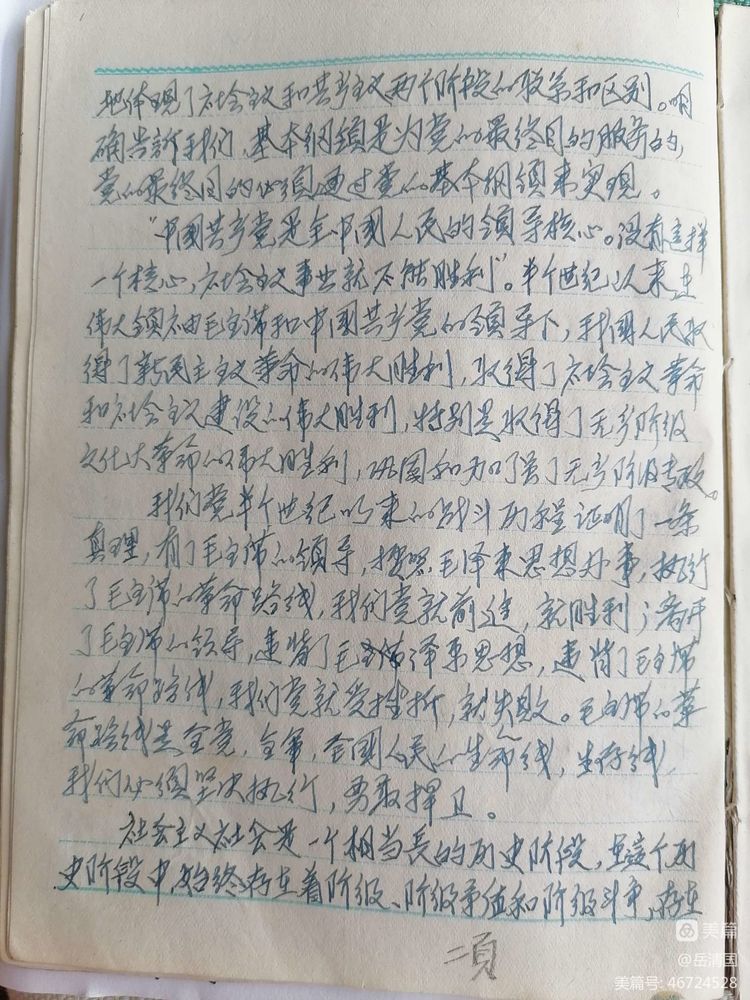 地体现了社会主义和共产主义两个阶段的联系和区别。明
确告訴我们，基本纲領是为党的最终目的服务的，
党的最终目的必須通过党的基本纲领来实现。
"中國共产党是全中國人民的領导核心。没有这样
一个核心，社会主义事业就不能胜利"。半个世纪以来在
伟大领袖毛主席和中國共产党的领导下，我國人民取
得了新民主主义革命的伟大胜利，取得了社会主义革命
和社会主义建设的伟大胜利，特别是取得了无产阶级
文化大革命的伟大胜利，巩固和加了强了无产阶级专政。
我们党半个世纪以来的战斗历程证明了一条
真理，有了毛主席的领导，按照毛泽东思想办事，执行
了毛主席的革命路线，我们党就前进，就胜利；离开
了毛主席的领导，違背了毛泽东思想，違背了毛主席
的革命路线，我们党就受挫折，就失败。毛主席的革
命路线是全党，全軍，全國人民的生命线，生存线，
我们必须坚决执行，勇敢捍卫。
社会主义社会是一个相当長的历史阶段，在這个历
史阶段中，始终存在着阶级、阶级矛盾和阶级斗争，存在
二頁
美篇
@岳清国
美篇号: 46724528